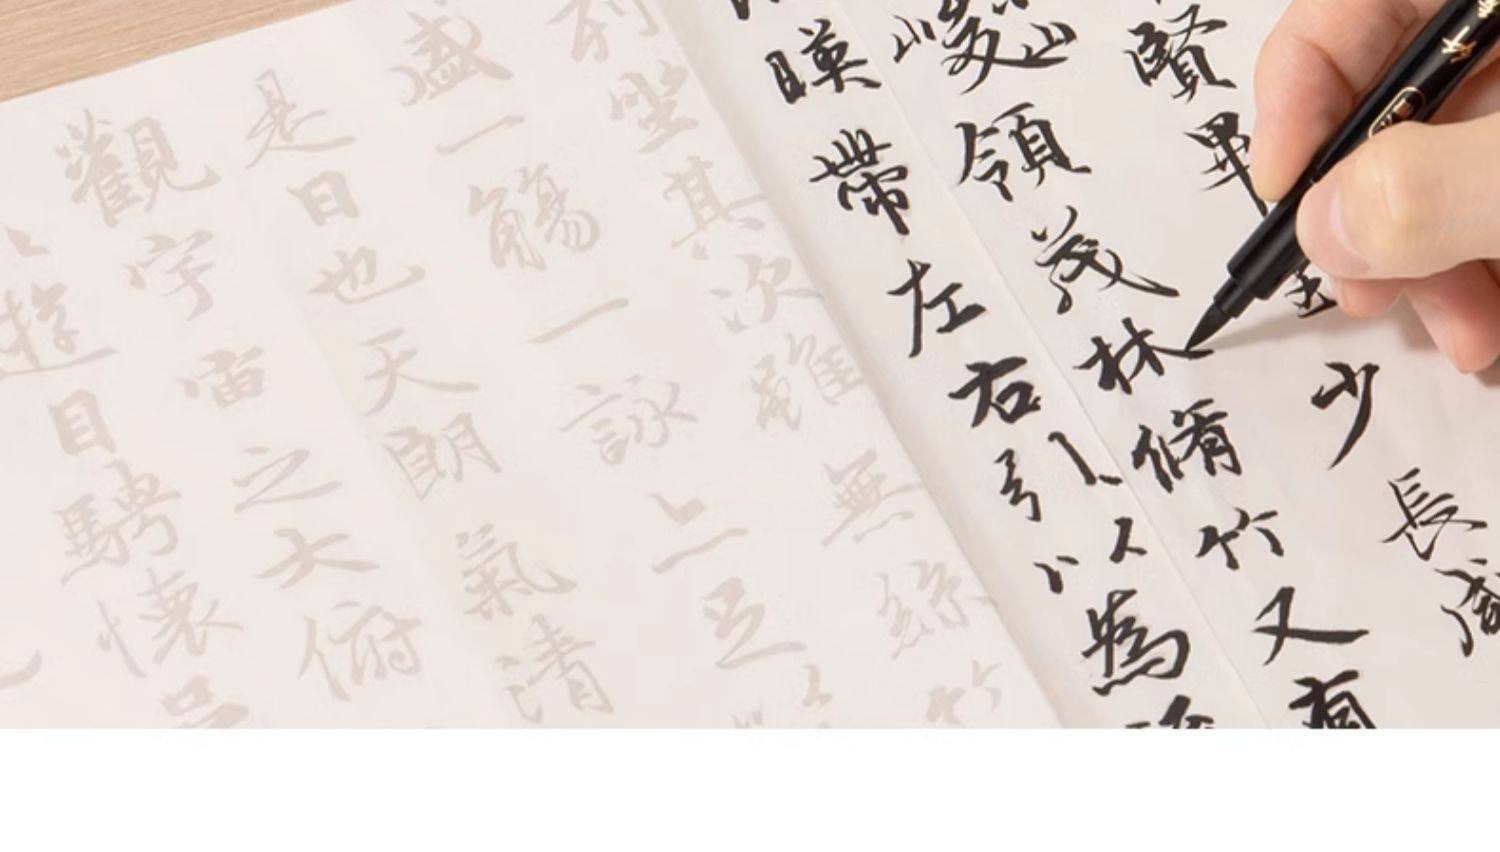 賢畢至少長咸
峻領茂林脩竹又有
暎帶左右引以為流
列坐其次雖無絲竹
盛一觴一詠亦足以
是日也天朗氣清
觀宇宙之大俯
遊目騁懷足